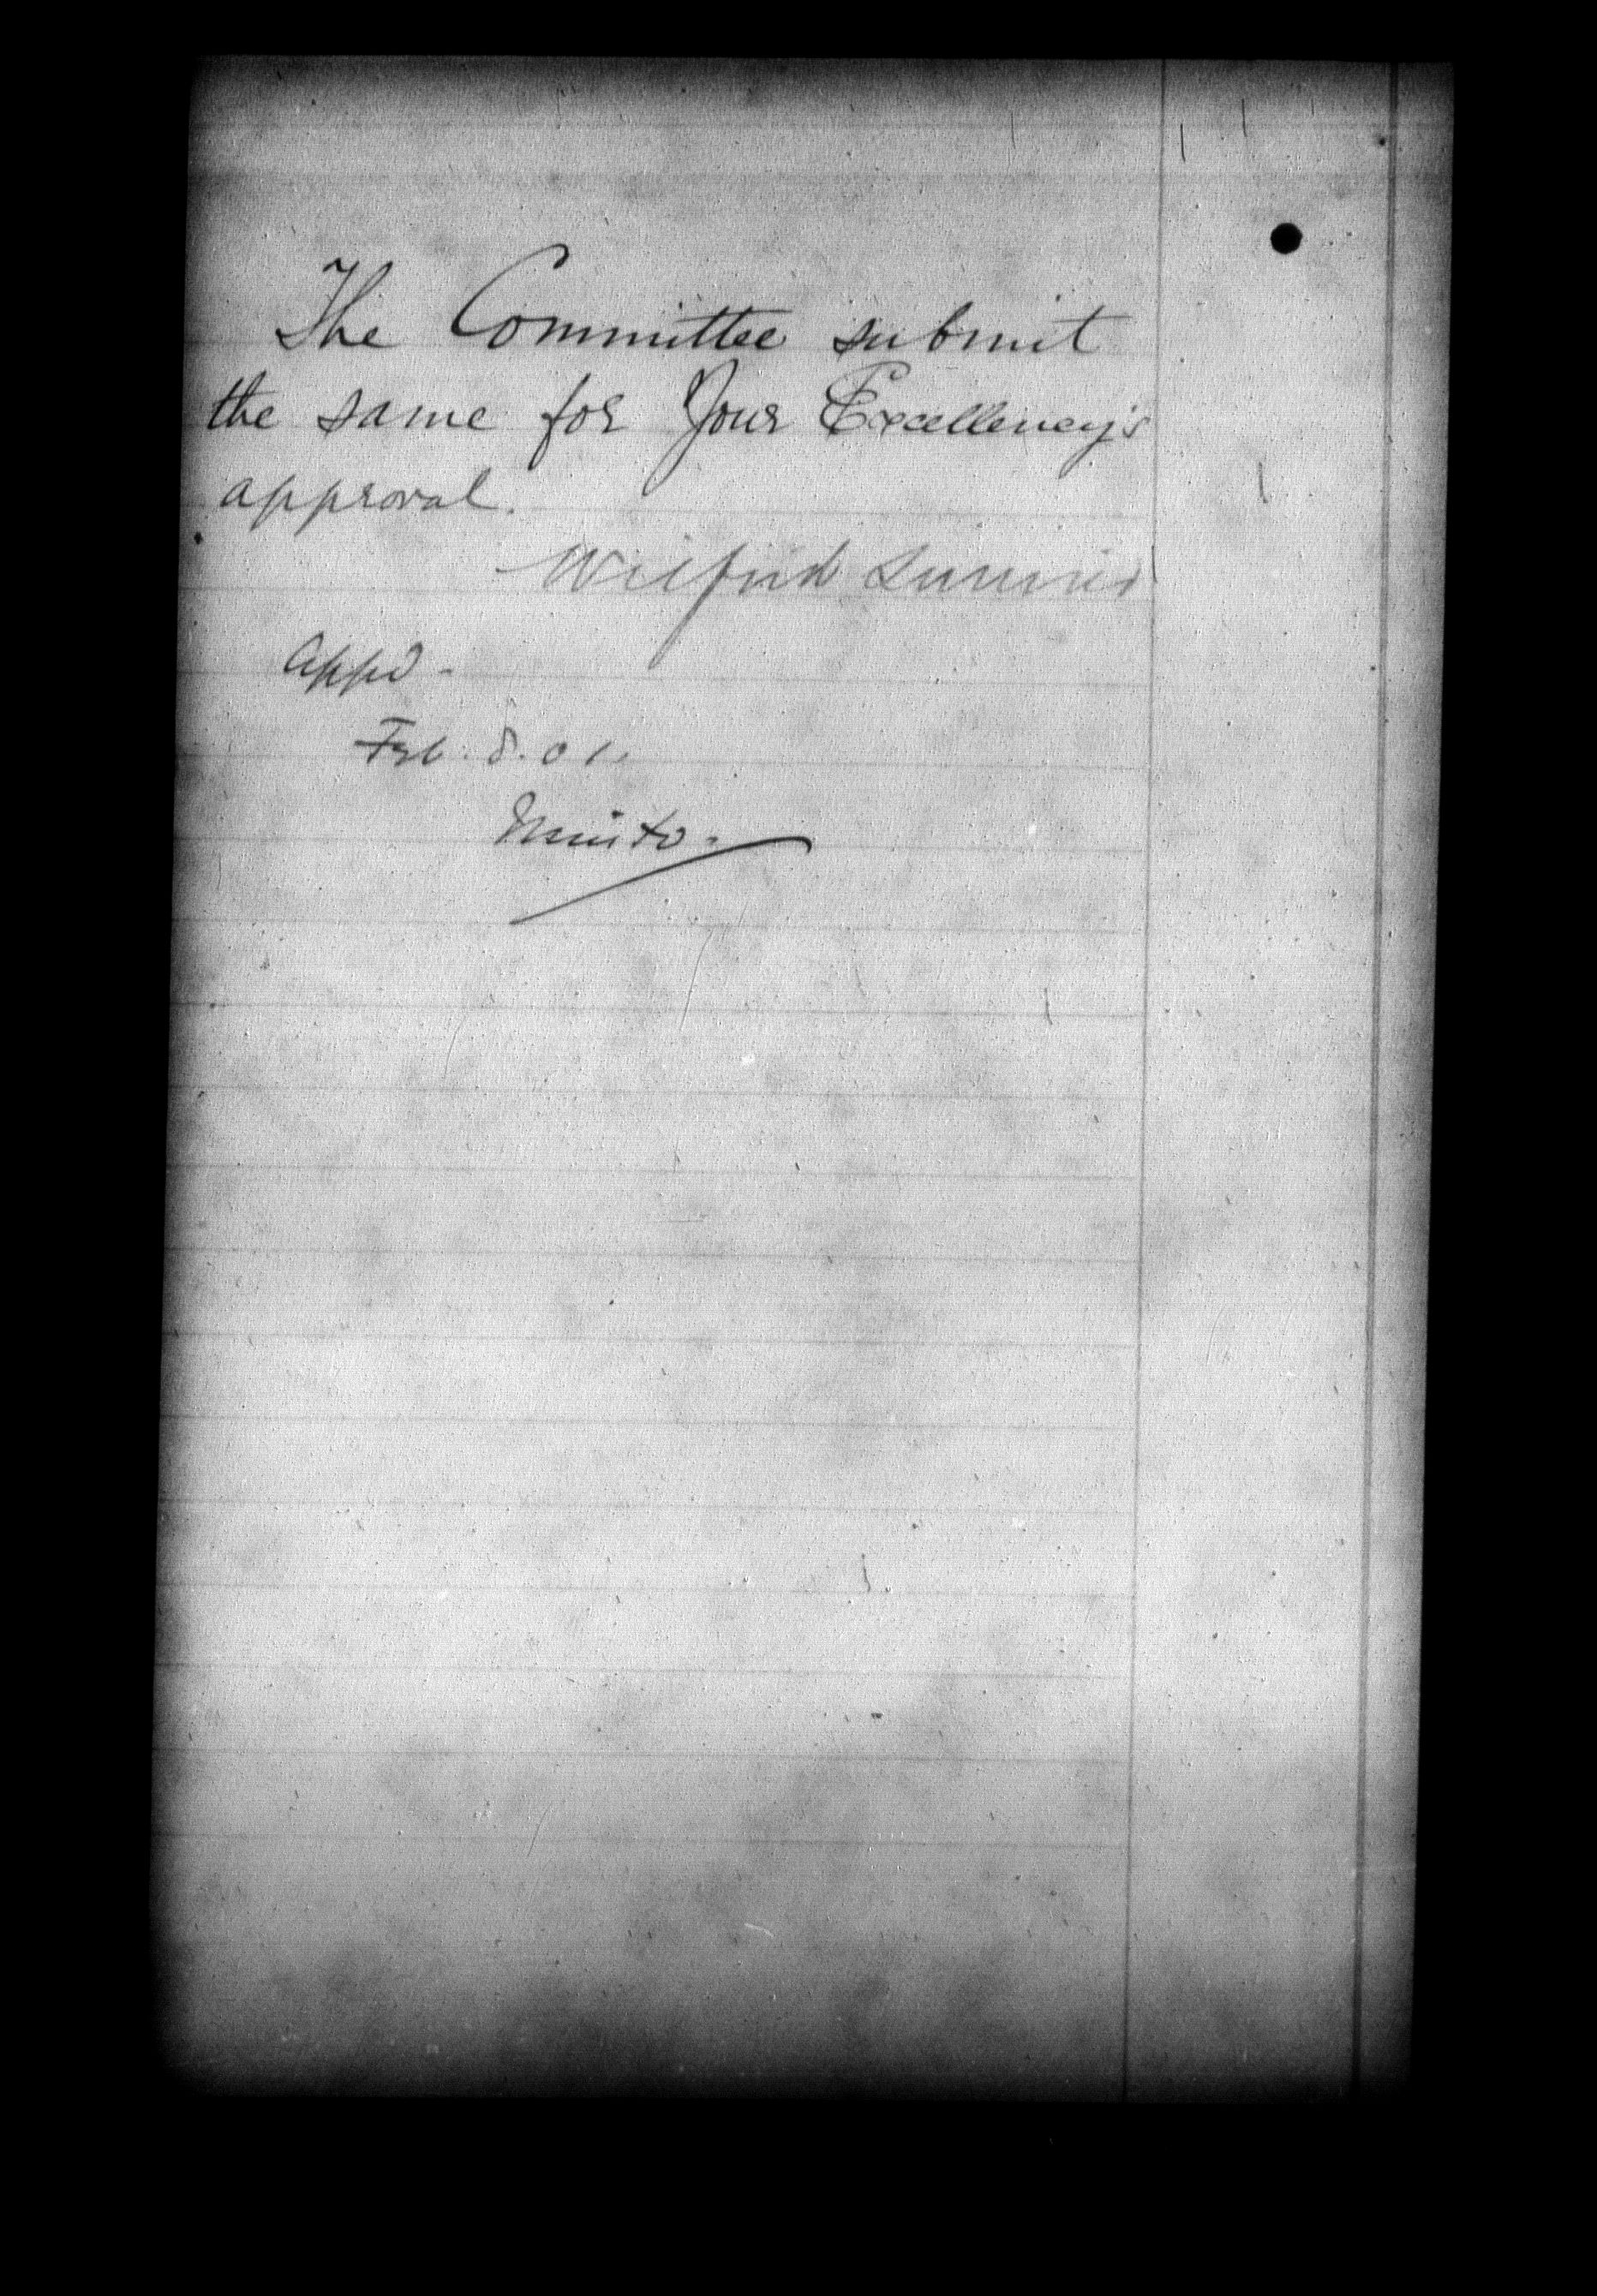 The Committee submit
the same for Your Excellency's
approval.
Wilfrid Laurier
Appd -
Feb. 8. 01.
Minto -